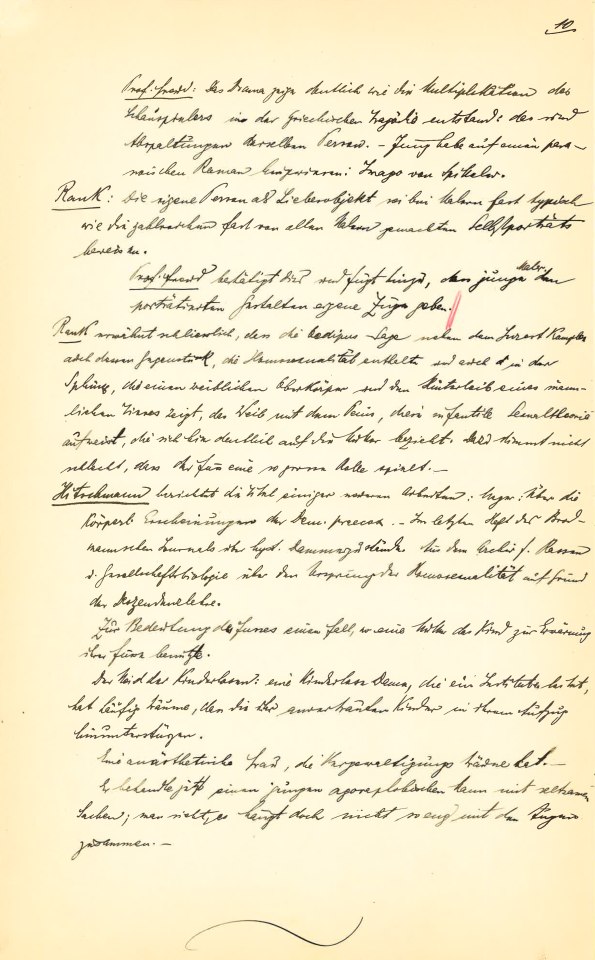 10
Prof. Freud: Das Drama zeige deutlich wie die Multiplikation des
Schauspielers in der Griechischen Tragödie entstand: das sind
Abspaltungen derselben Person. – Jung habe auf einen
Roman hingewiesen: Imago von Spitteler.
Rank: Die eigene Person als Liebesobjekt sei bei Malern fast typisch
wie die zahlreichen fast von allen Malern gemachten Selbstporträts
beweisen.
Prof. Freud bestätigt dies und fügt hinzu, dass junge Maler den
porträtierten Gestalten eigene Züge geben.
Rank erwähnt schliesslich, dass die Oedipus-Sage neben dem Inzest Komplex
auch dessen Gegenstück, die Homosexualität enthalte und auch in der
Sphinx, die einen weiblichen Oberkörper und den Hinterleib eines männ-
lichen Tieres zeigt, das Weib mit dem Penis, diese infantile Sexualtheorie
aufweist, die sich hier deutlich auf die Mutter bezieht. Dazu stimmt nicht
schlecht, dass der Fuss eine so grosse Rolle spielt. –
Hitschmann berichtet die Titel einiger neueren Arbeiten: Über die
Körperl. Erscheinungen der Dem. praecox. – Im letzten Heft des Brod-
mannschen Journals über hyst. Dämmerzustände. Aus dem Archiv f. Rassen
u. Gesellschaftsbiologie über den Ursprung der Homosexualität auf Grund
der Deszendenzlehre.
Zur Bedeutung des Fusses einen Fall, wo eine Mutter das Kind zur Erwärmung
ihrer Füsse benützte.
Der Neid der Kinderlosen: eine Kinderlose Dame, die ein Institut leitet,
hat häufig Träume, dass die ihr anvertrauten Kinder in ihrem Aufzug
hinunterstürzen.
Eine anästhetische Frau, die Vergewaltigungs träume hat. –
Er behandle jetzt einen jungen agoraphobischen Mann mit seltsamen
Sachen; man sieht, es hängt doch nicht so eng mit den
zusammen. –